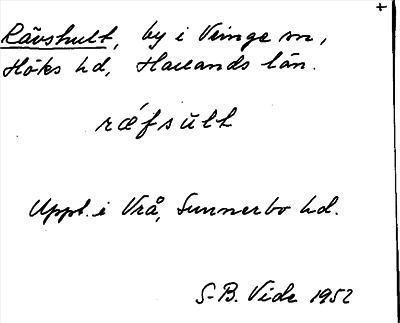 +
Rävshult, by i Veinge sn,
Höks hd, Hallands län.
rǽfsŭlt
Uppt. i Vrå, Sunnerbo hd.
S-B. Vide 1952